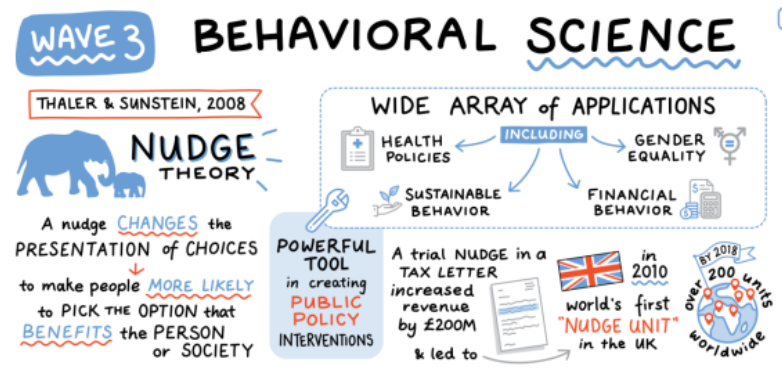 WAVE 3
BEHAVIORAL SCIENCE
THALER & SUNSTEIN, 2008
NUDGE
THEORY
A nudge CHANGES the
PRESENTATION of CHOICES
to make people MORE LIKELY
to PICK THE OPTION that
BENEFITS the PERSON
or SOCIETY
WIDE ARRAY of APPLICATIONS
INCLUDING
HEALTH
POLICIES
GENDER
EQUALITY
SUSTAINABLE
BEHAVIOR
FINANCIAL
BEHAVIOR
$
POWERFUL
TOOL
in creating
PUBLIC
POLICY
INTERVENTIONS
A trial NUDGE in a
TAX LETTER
increased
revenue
by £200M
& led to
in
2010
world's first
"NUDGE UNIT"
in the UK
BY 2018
over 200 units
worldwide